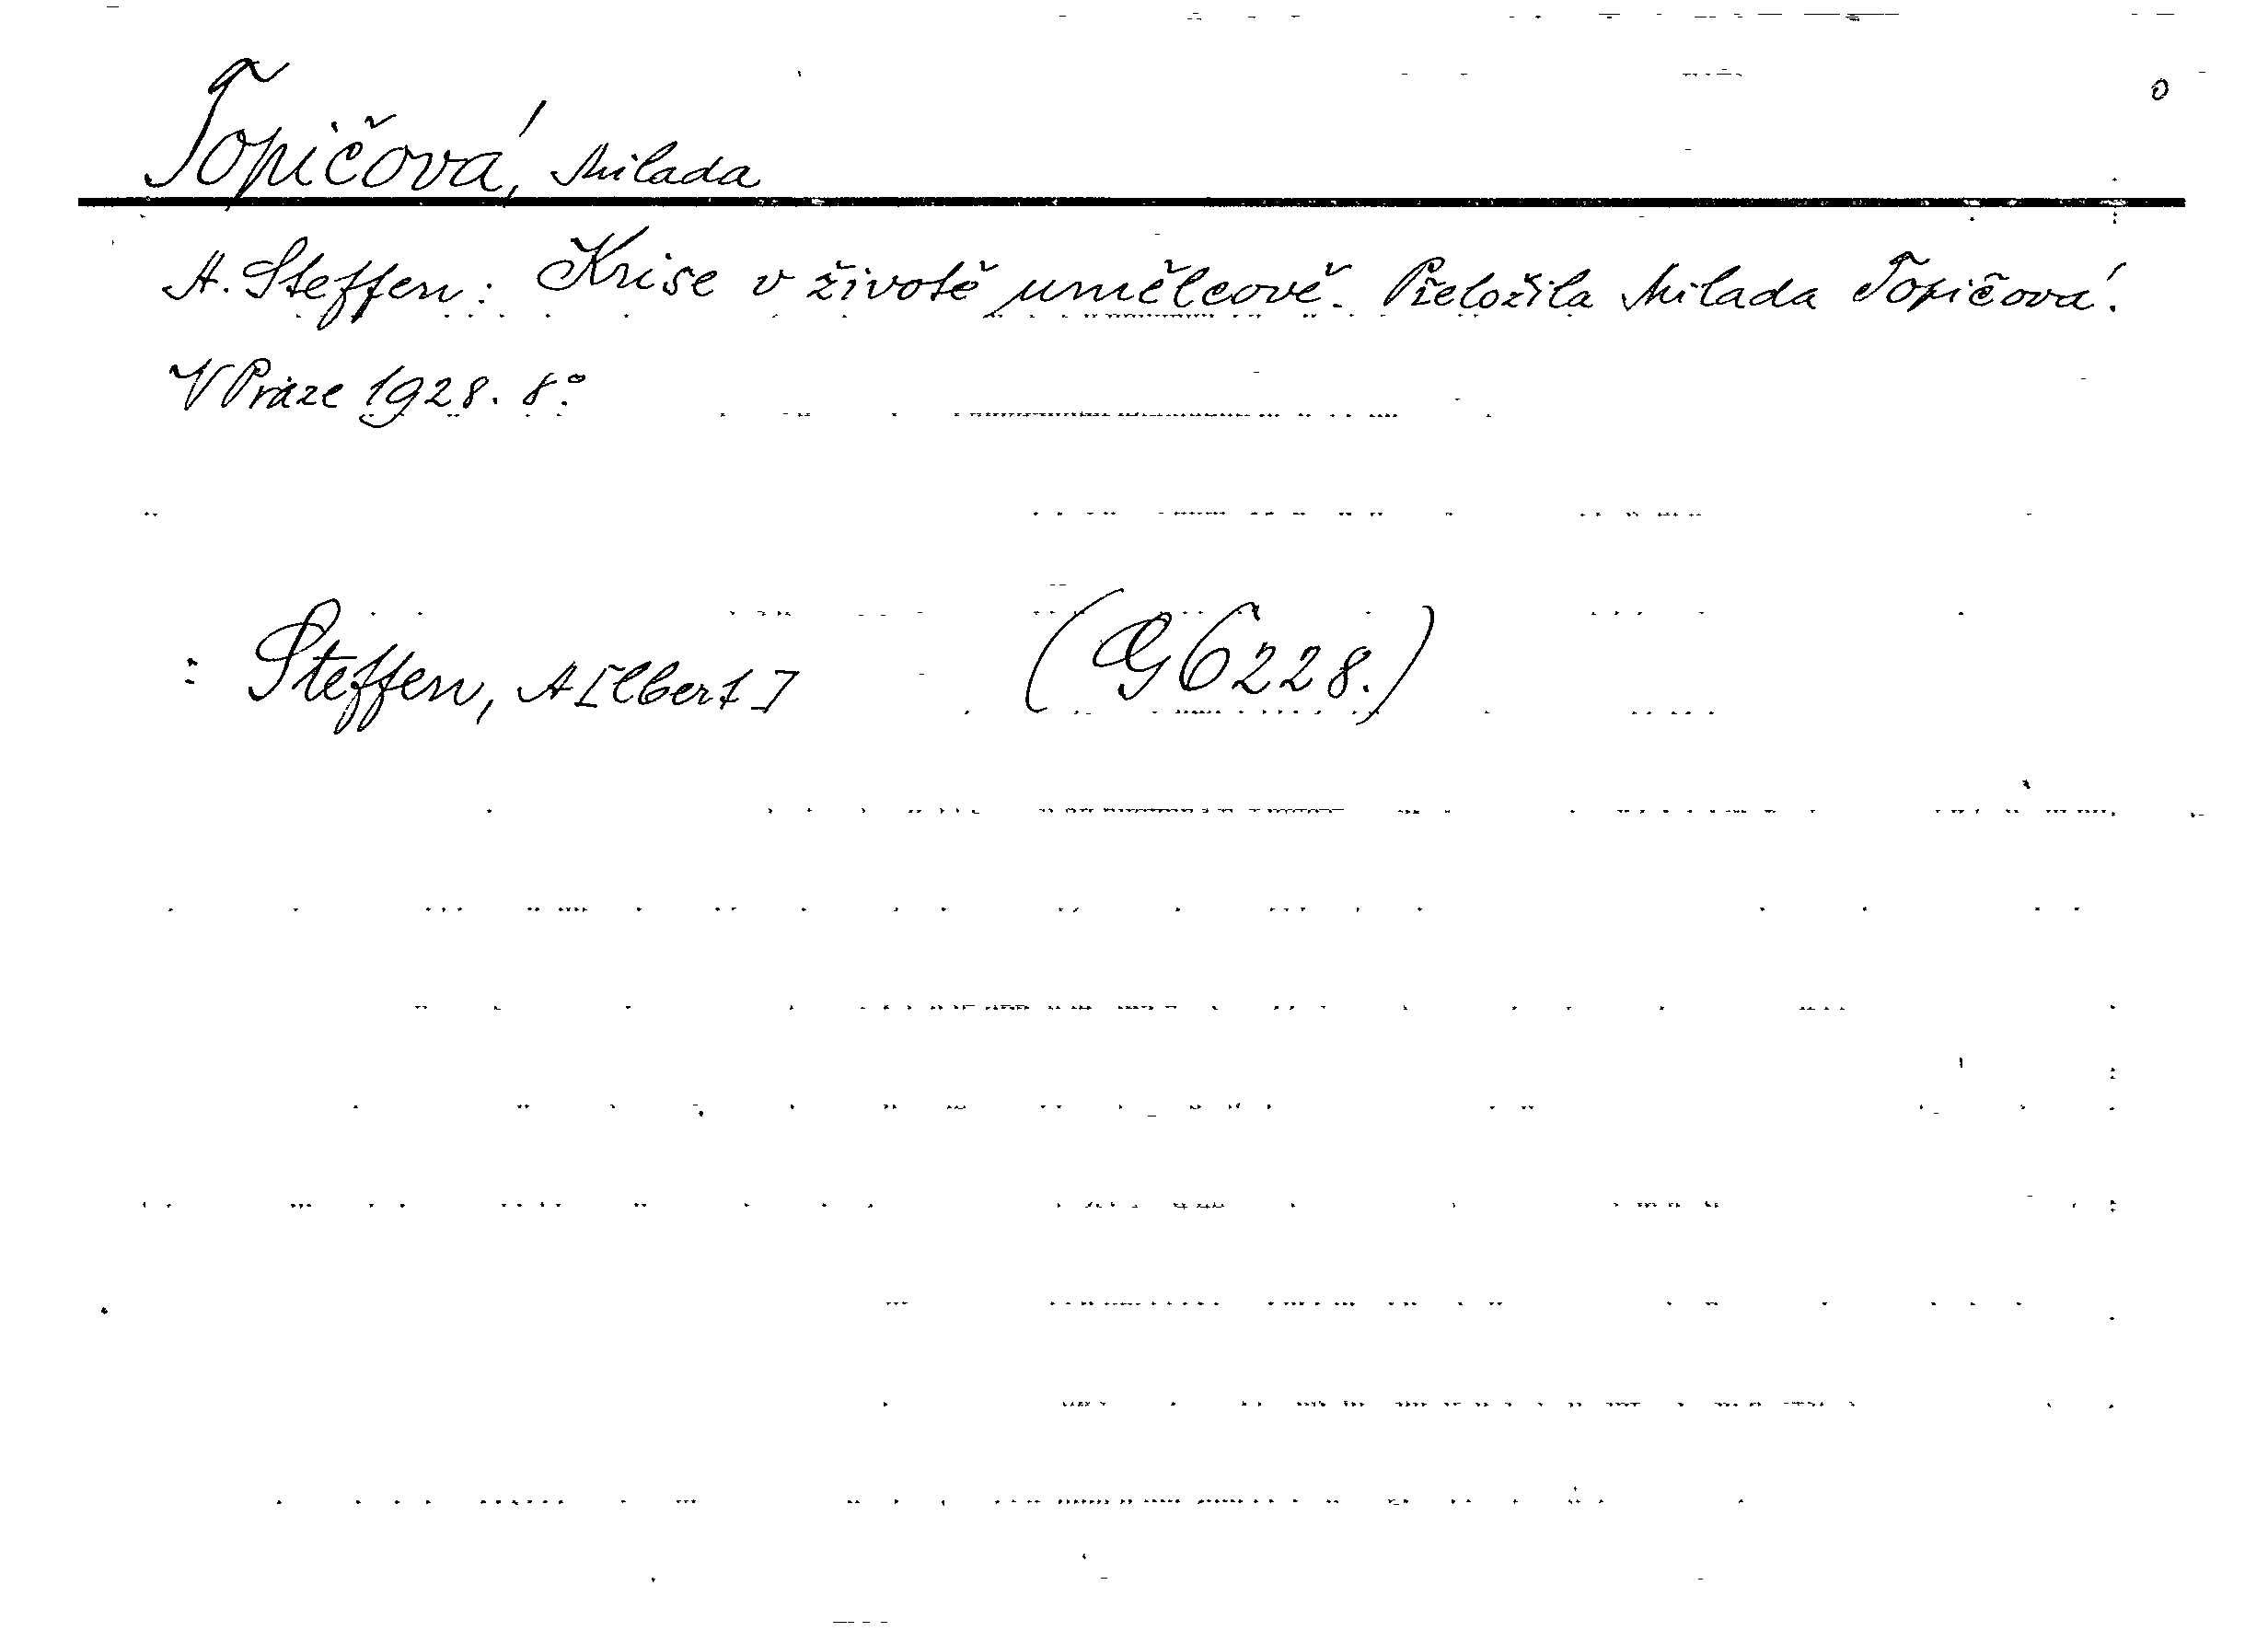 o
Topičová, Milada
A. Steffen: Krise v životě umělcově. Přeložila Milada Topičová.
V Praze 1928. 8°
: Steffen, A[lbert] (G 6228.)